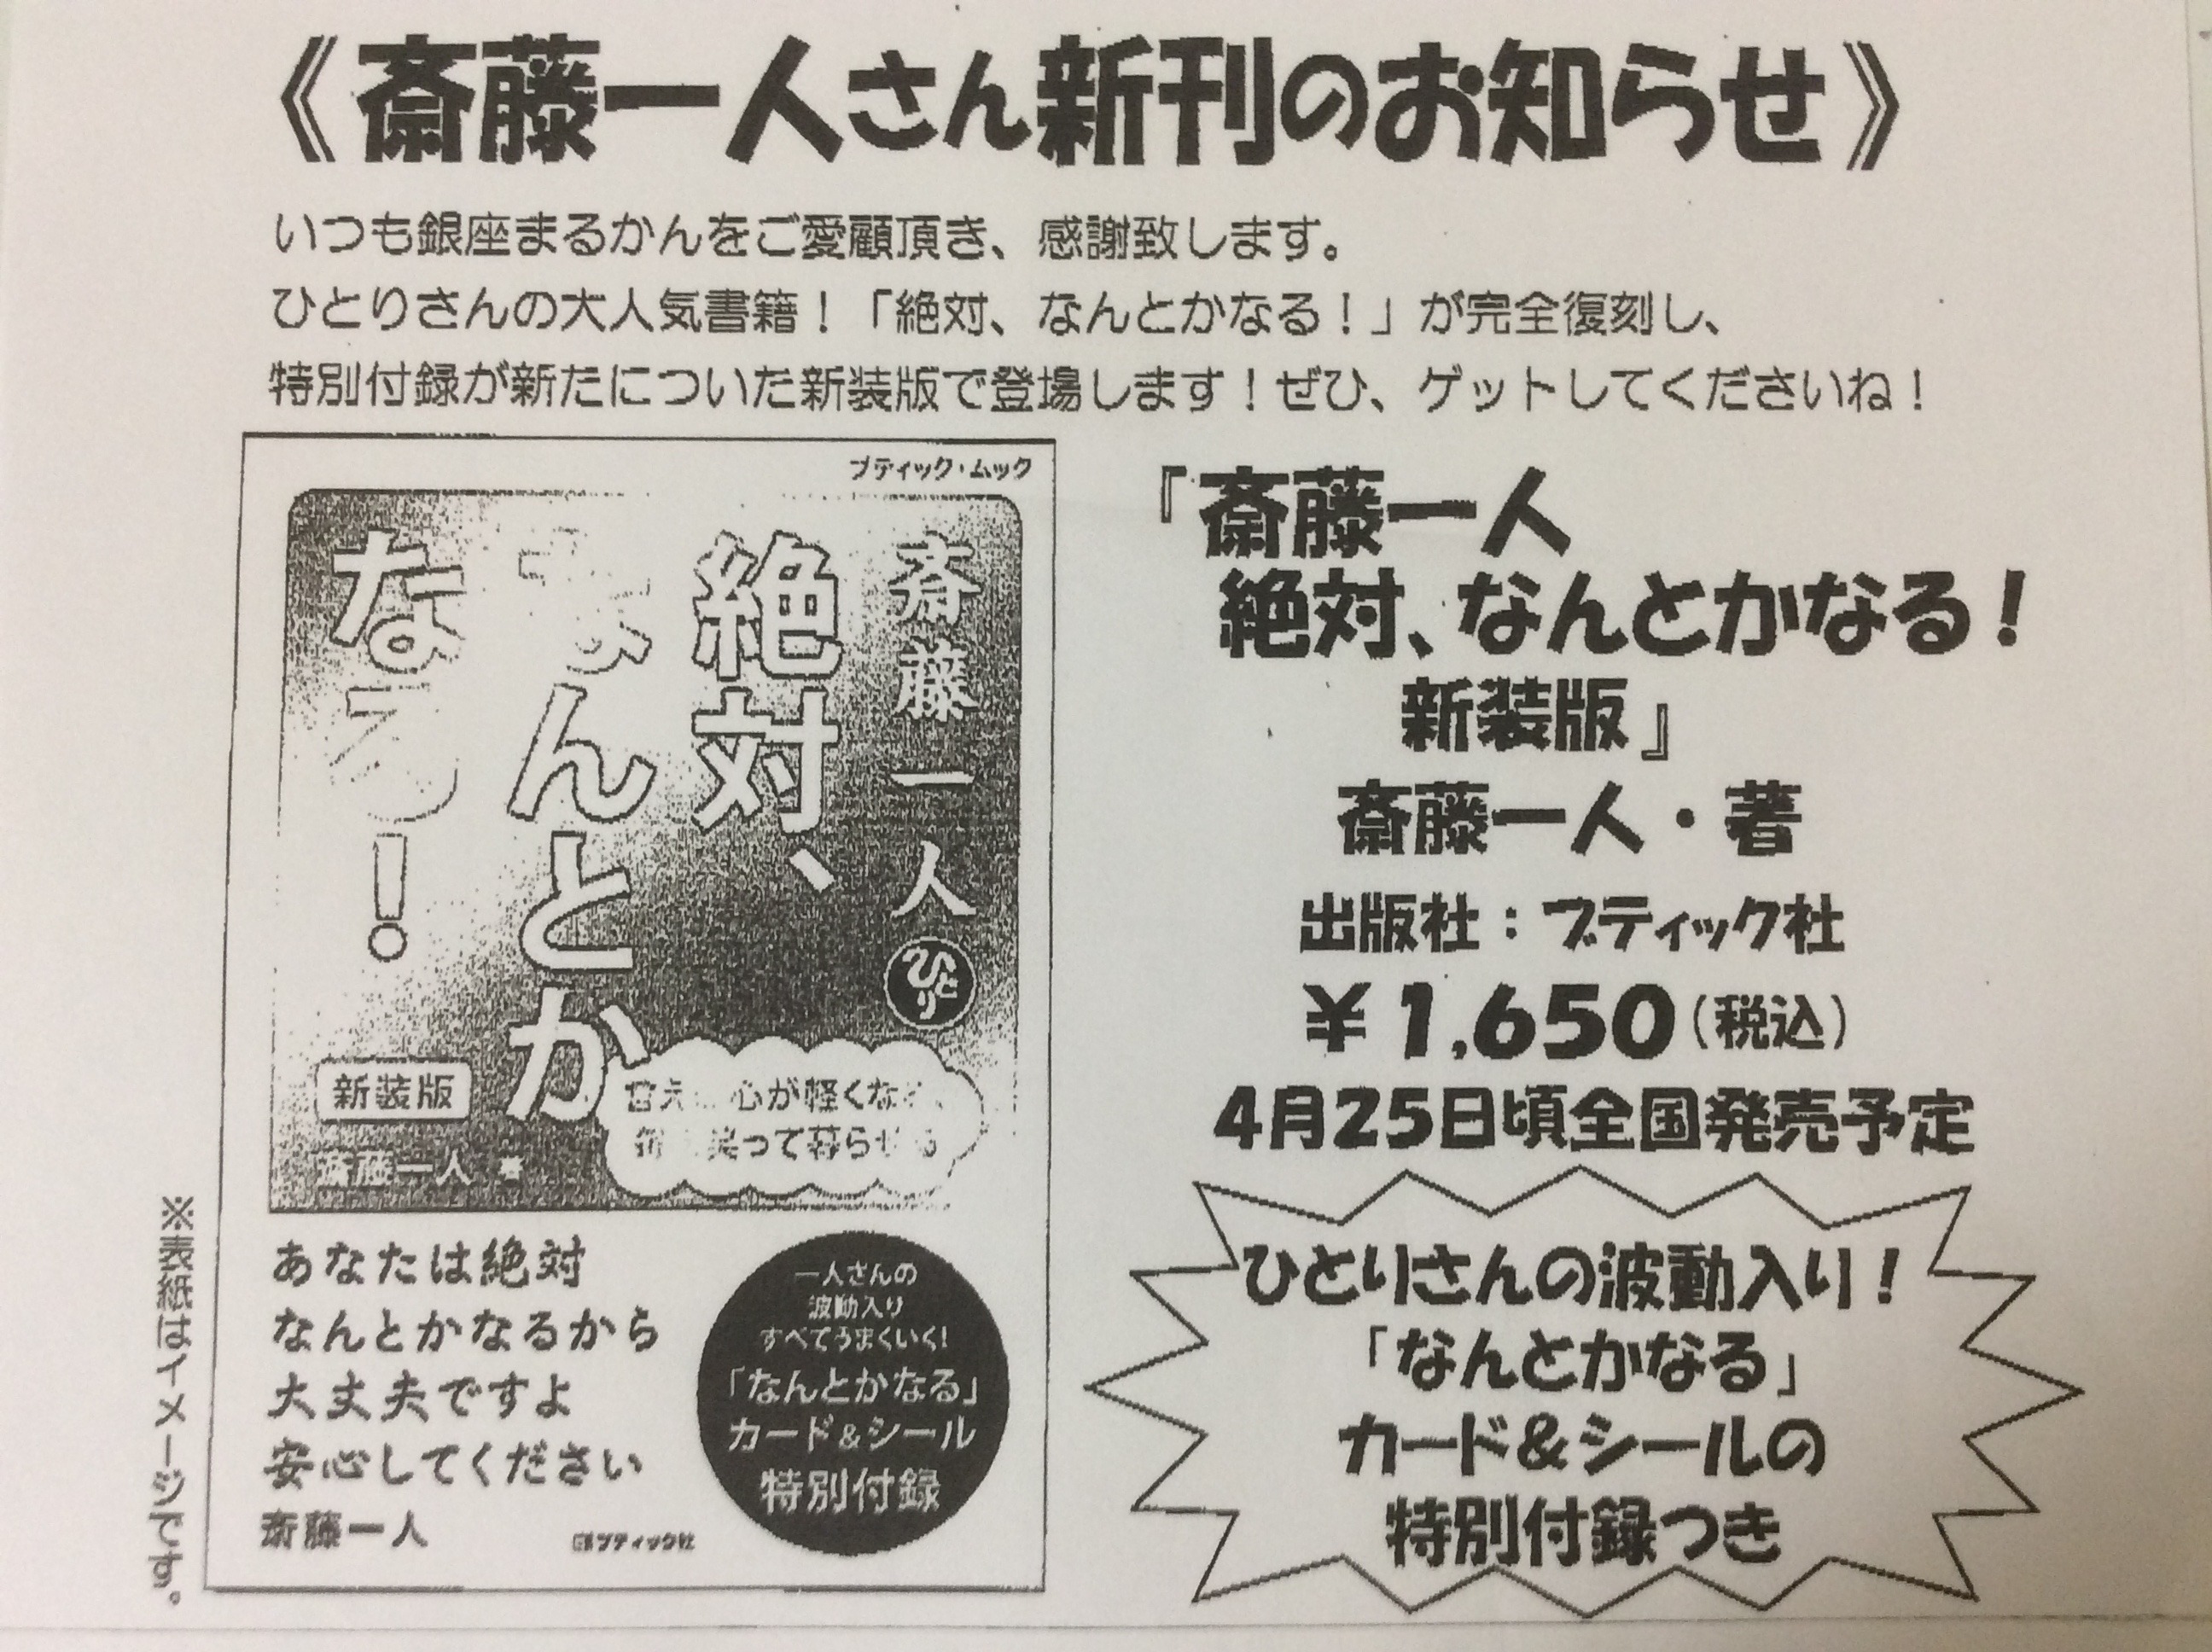 《斎藤一人さん新刊のお知らせ》
いつも銀座まるかんをご愛顧頂き、感謝致します。
ひとりさんの大人気書籍！「絶対、なんとかなる！」が完全復刻し、
特別付録が新たについた新装版で登場します！ぜひ、ゲットしてくださいね！
ブティック・ムック
斎藤一人
ひとり
絶対、
なんとか
なる！
新装版
斎藤一人 著
言えば心が軽くなる、
毎日笑って暮らせる
あなたは絶対
なんとかなるから
大丈夫ですよ
安心してください
斎藤一人
ブティック社
一人さんの
波動入り
すべてうまくいく!
「なんとかなる」
カード&シール
特別付録
※表紙はイメージです。
『斎藤一人
絶対、なんとかなる！
新装版』
斎藤一人・著
出版社：ブティック社
￥1,650（税込）
4月25日頃全国発売予定
ひとりさんの波動入り！
「なんとかなる」
カード&シールの
特別付録つき